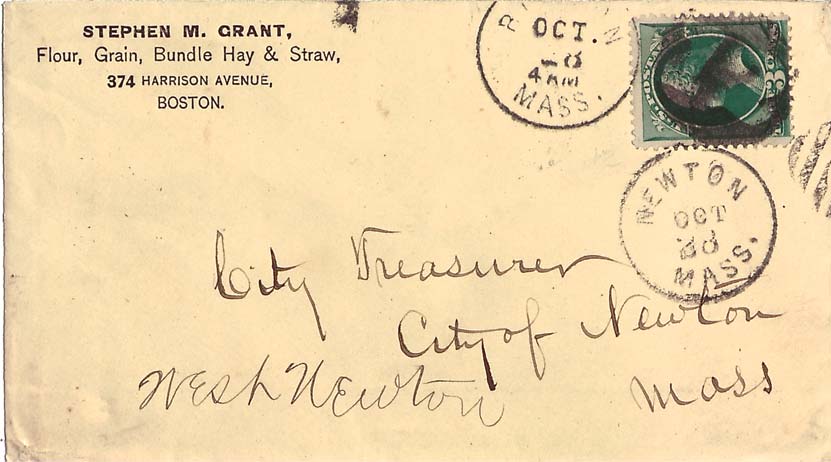 STEPHEN M. GRANT,
Flour, Grain, Bundle Hay & Straw,
374 HARRISON AVENUE,
BOSTON.
OCT.
28
MASS.
NEWTON
OCT
MASS.
City Treasurer
City of Newton
West Newton Mass